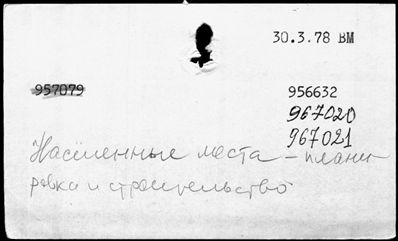 30.3.78 ВМ
957079
956632
967020
967021
Населенные места – плани
ровка и строительство